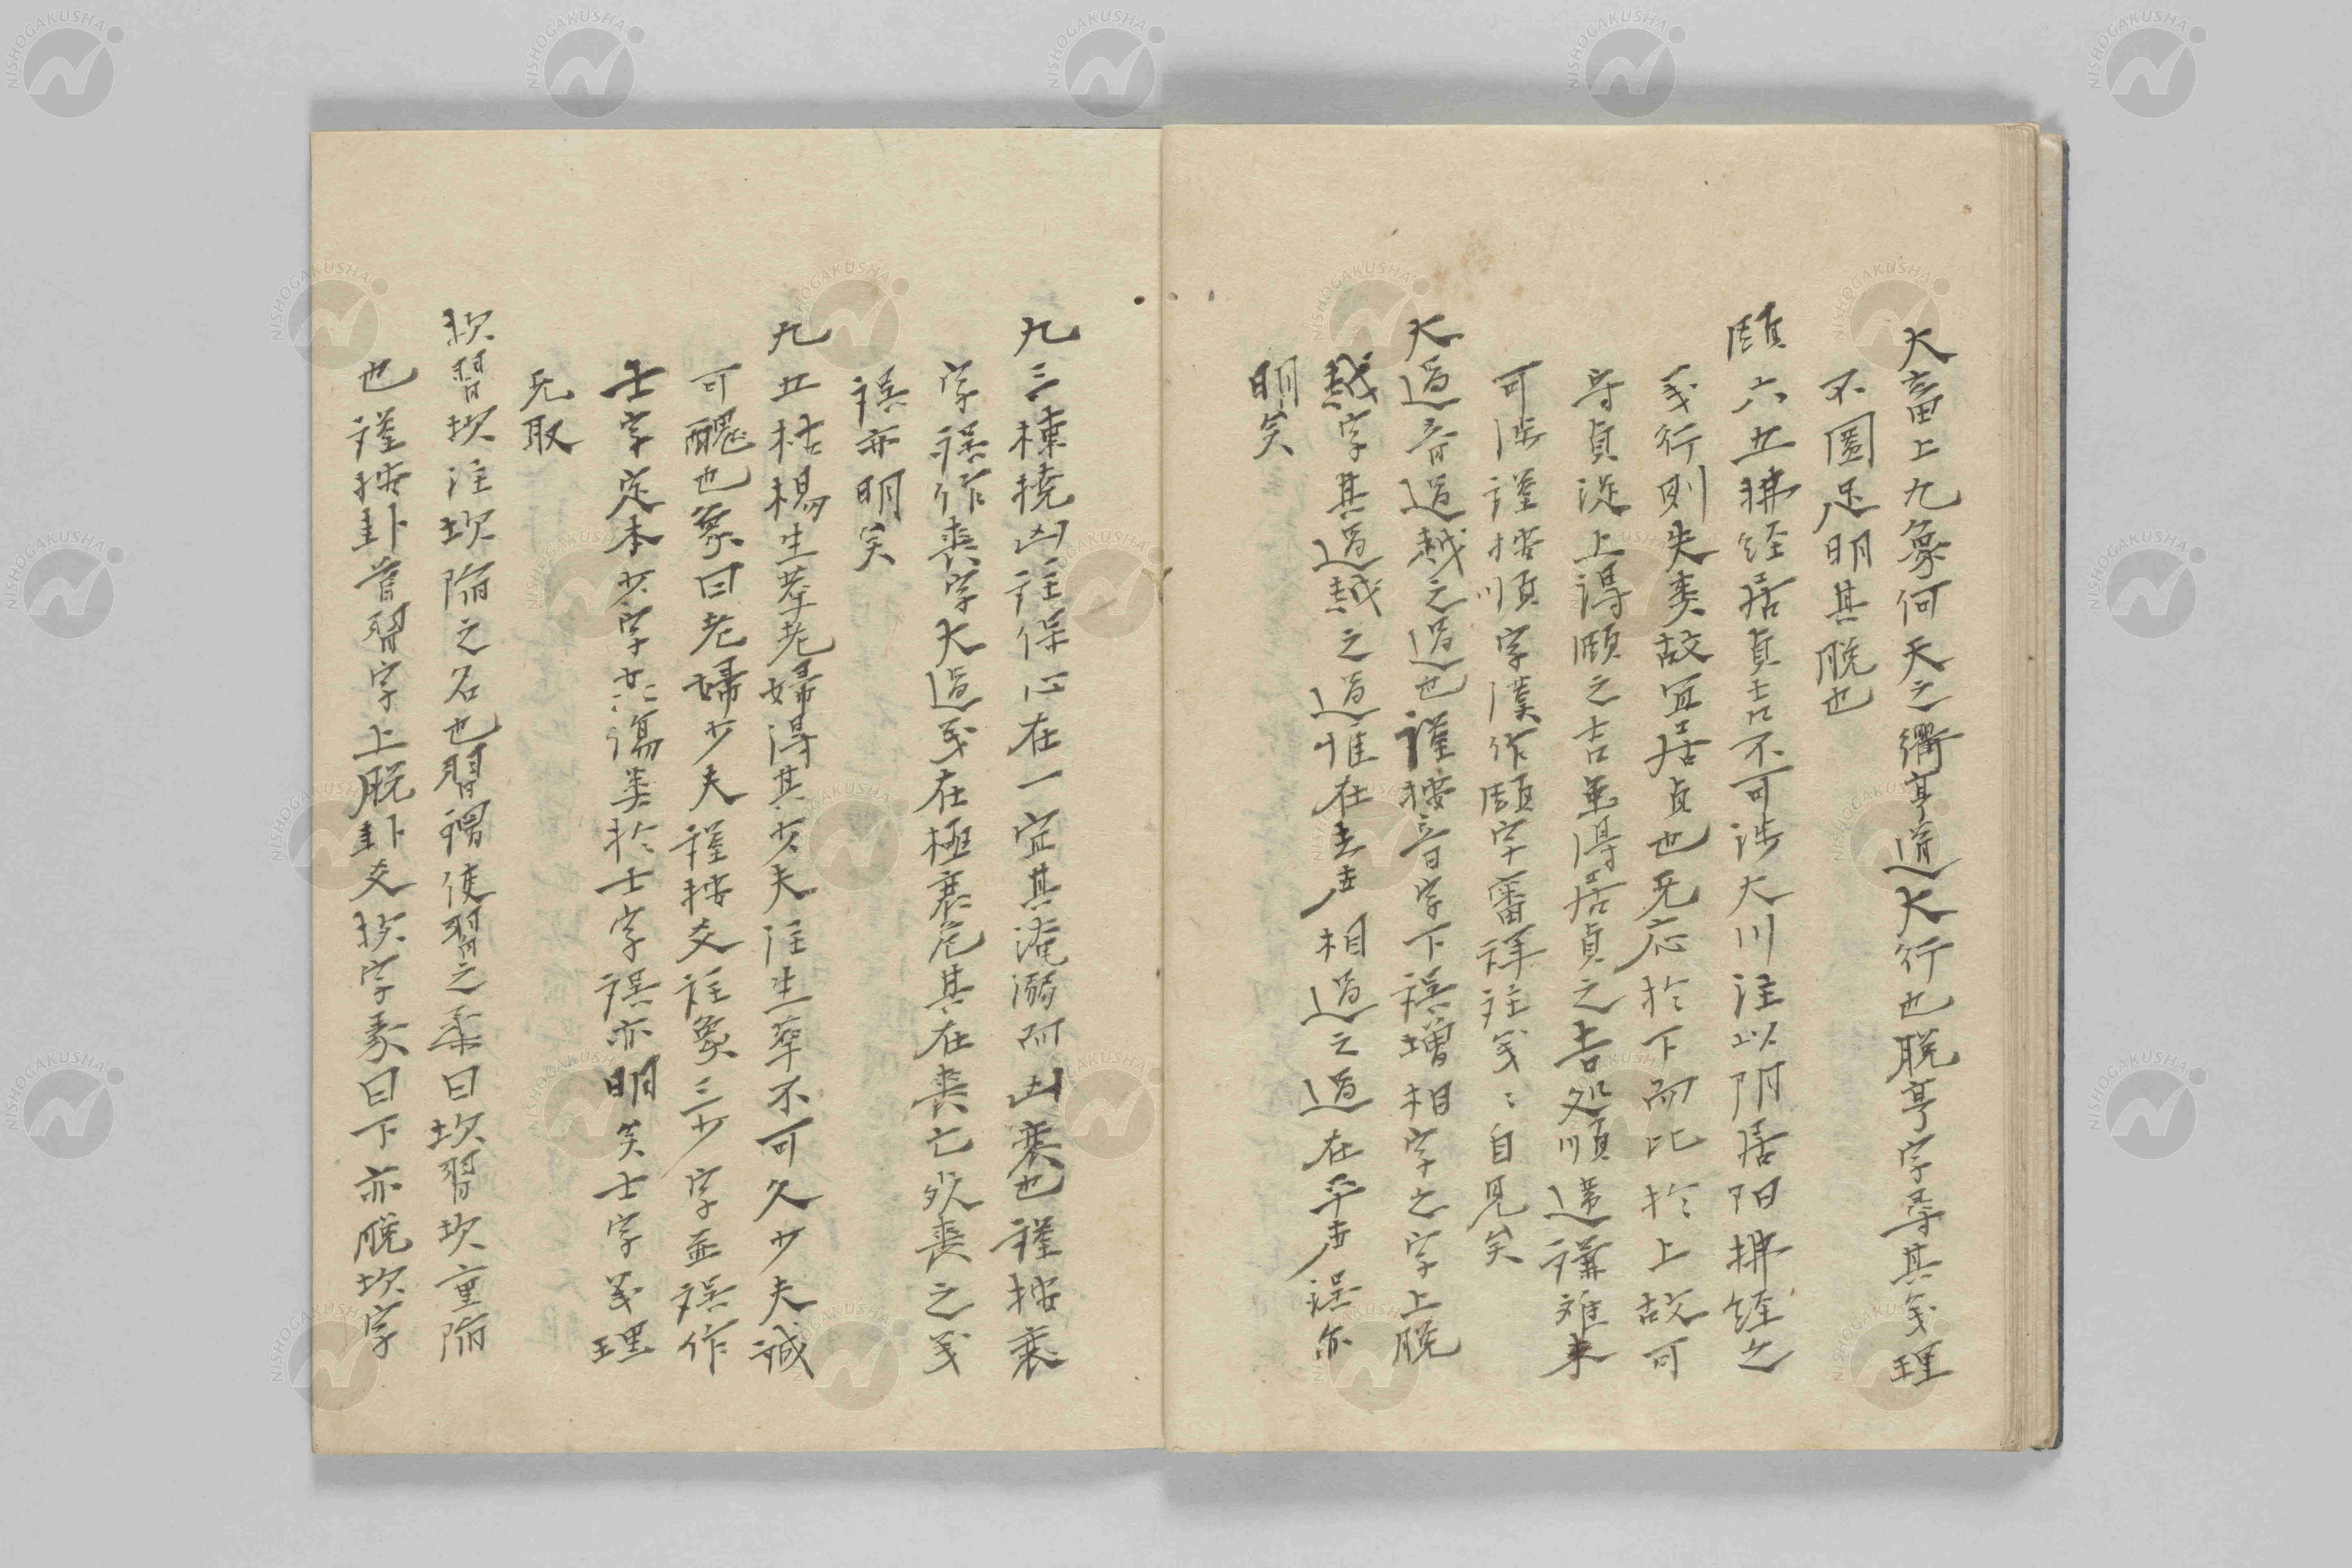 大畜上九象何天之衢亨道大行也脱亨字尋其義理
不圖足明其脱也
頤六五拂経居貞吉不可涉大川注以阴居阳拂経之
義行則失类故宜居貞也无応於下而比於上故可
守貞従上得頤之吉虽得居貞之吉処順違謙难未
可涉謹按順字漢作頤字審詳注義〻自見矣
大過音過越之過也謹按音字下誤增相字之字上脱
越字其過越之過惟在去声相過之過在平声誤亦
明矣
九三棟撓凶注保心在一宜其淹溺而凶衰也謹按衰
字誤作喪字大過義在極衰危其在喪亡玖喪之義
誤亦明矣
九五枯楊生華老婦得其少夫注生華不可久少夫誠
可醜也象曰老婦少夫謹按爻注象三少字並誤作
士字定本少字𦬇渴类於士字誤亦明矣士字義理
无取
坎習坎注坎陥之名也習謂使習之彖曰坎習坎重陥
也謹按卦首習字上脱卦爻坎字彖曰下亦脱坎字
NISHOGAKUSHA